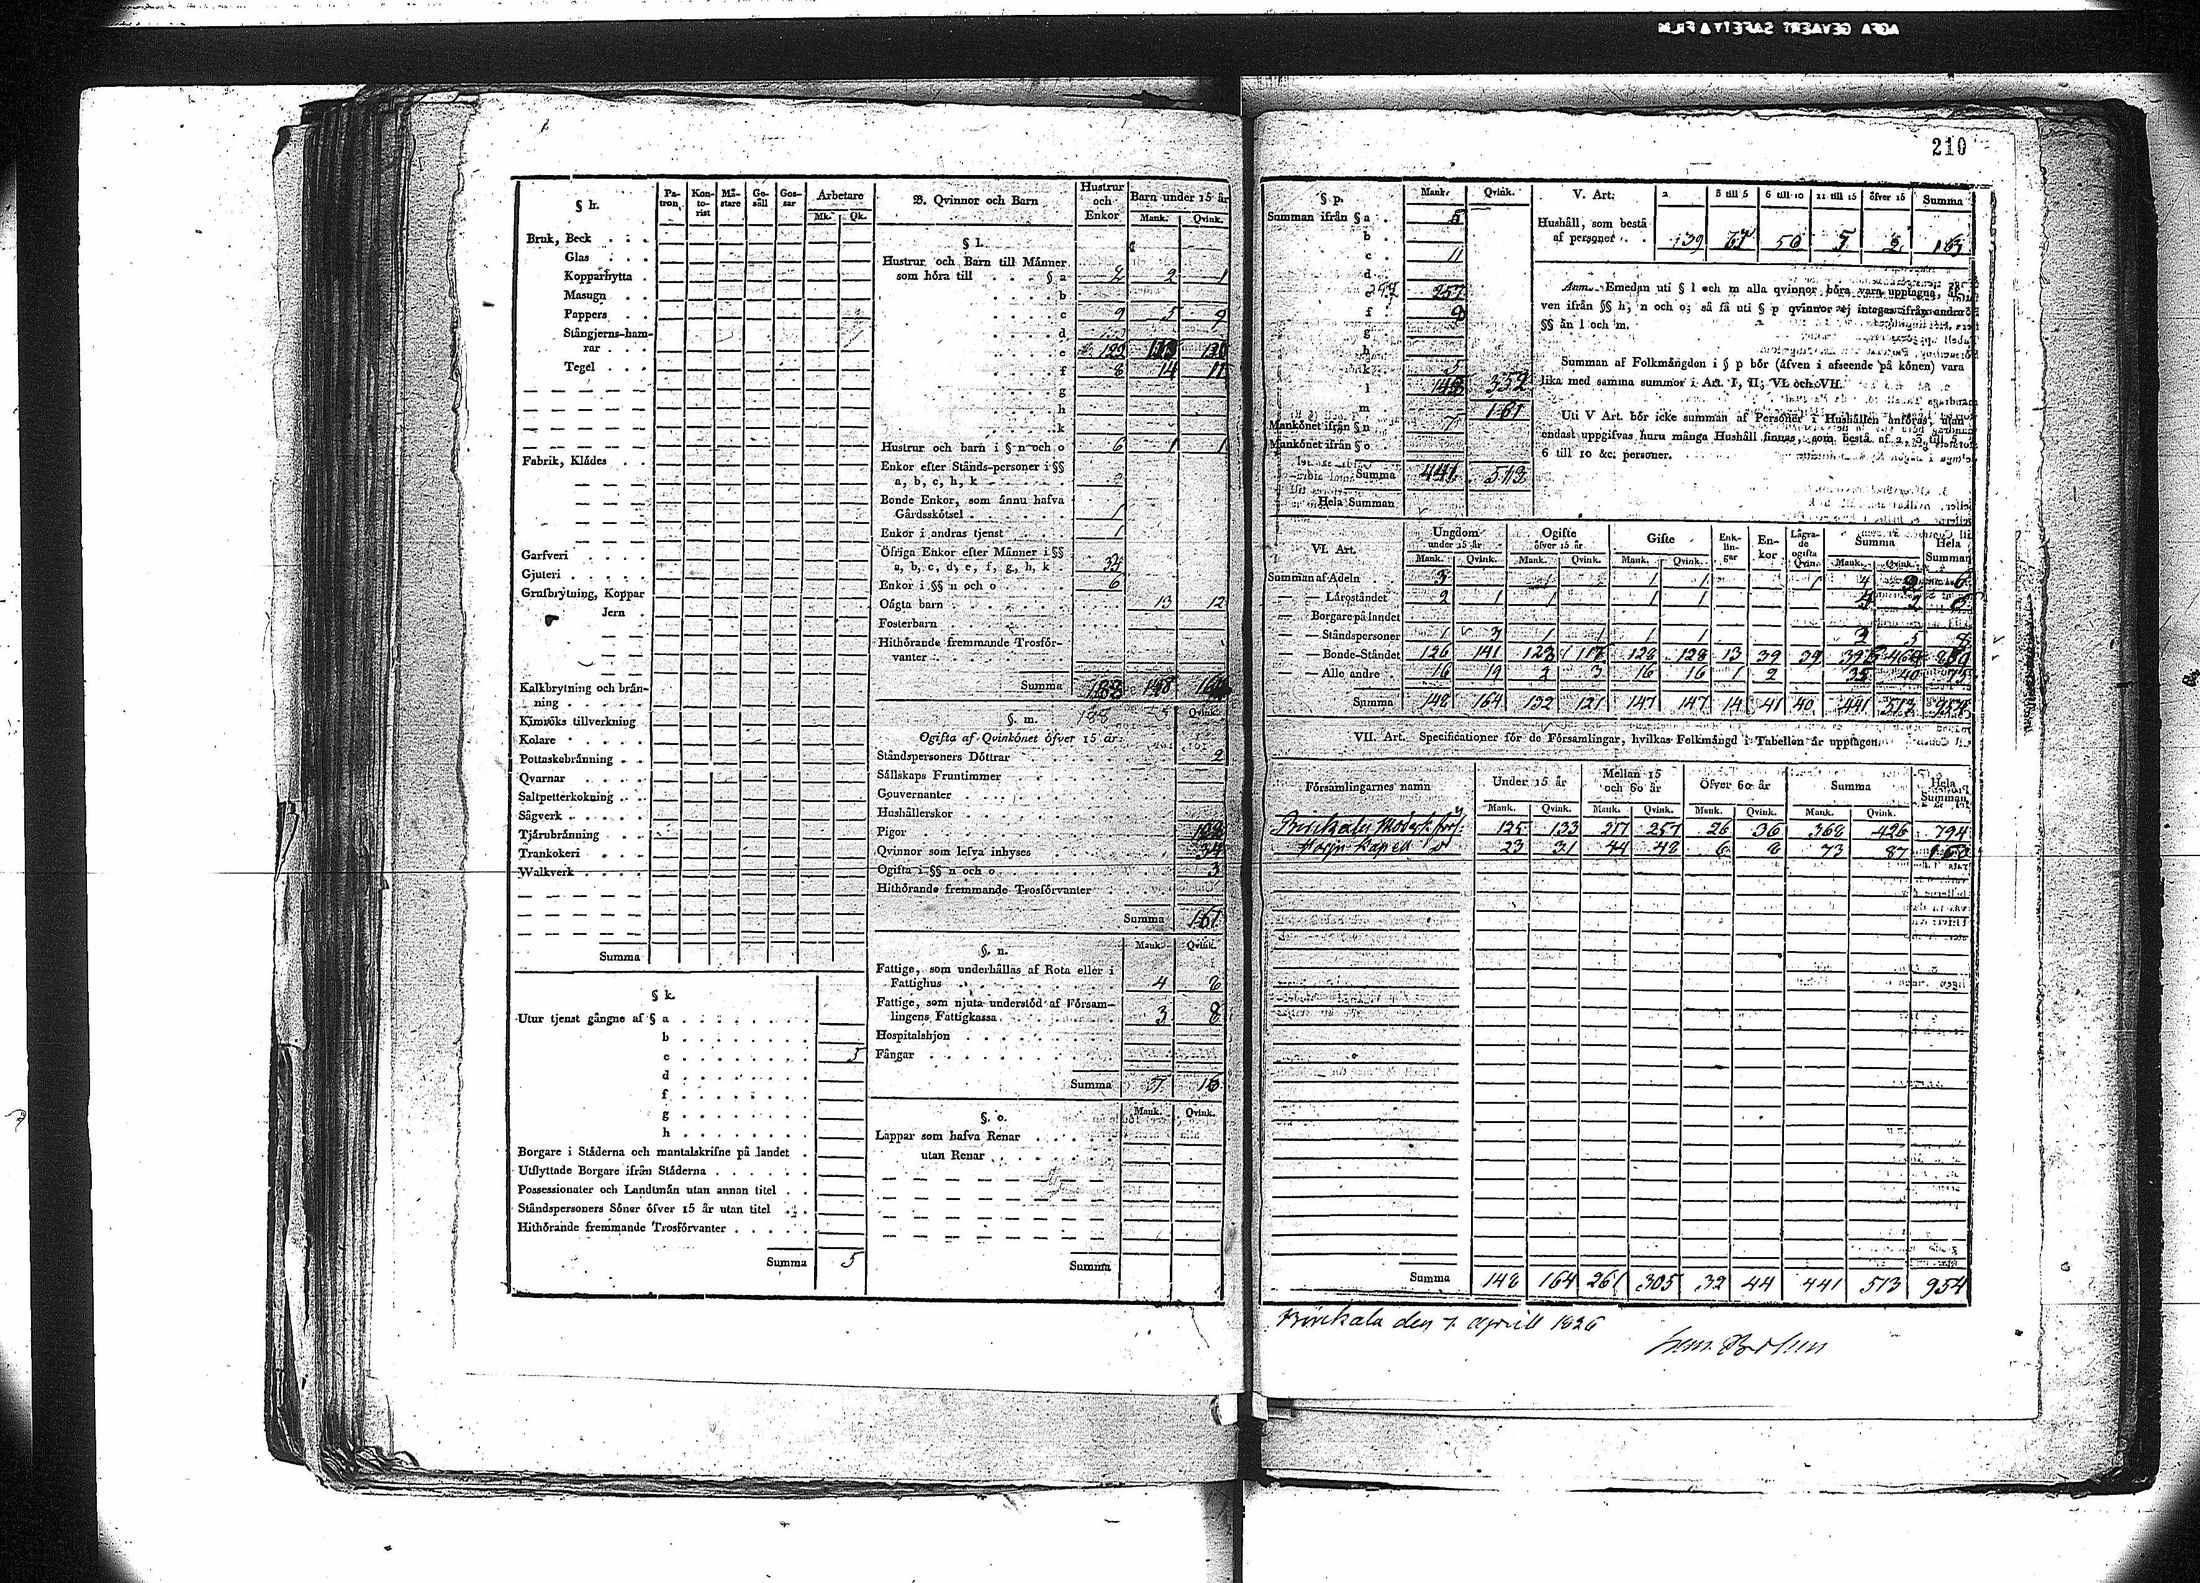 AGFA GEVAERT SAFETY FILM
210
§ h.
Pa-tron. Kon-to-rist Må-stare Ge-såll Gos-sar Arbetare
Mk. Qk.
Bruk, Beck
Glas
Kopparhytta
Masugn
Pappers
Stångjerns-ham-
rar
Tegel
Fabrik, Klådes
Garfveri
Gjuteri
Grufbrytning, Koppar
Jern
Kalkbrytning och brån-
ning
Kimróks tillverkning
Kolare
Pottaskebrånning
Qvarnar
Saltpetterkokning
Sågverk
Tjårubrånning
Trankokeri
Walkverk
Summa
§ k.
Utur tjenst gångne af § a
b
c 5
d
f
g
h
Borgare i Ståderna och mantalskrifne på landet
Utflyttade Borgare ifrån Ståderna
Possessionater och Landtmån utan annan titel
Ståndspersoners Sóner ófver 15 år utan titel
Hithórande fremmande Trosfórvanter
Summa 5
B. Qvinnor och Barn
Hustrur och Enkor Barn under 15 år
Mank. Qvink.
§ l.
Hustrur och Barn till Månner
som hóra till § a 2 2 1
b
c 9 5 9
d
e 122
f 8 14 11
g
h
k
Hustrur och barn i § n och o 6 1 1
Enkor efter Stånds-personer i §§
a, b, c, h, k
Bonde Enkor, som ånnu hafva
Gårdsskótsel 1
Enkor i andras tjenst 1
Öfriga Enkor efter Månner i §§
a, b, c, d, e, f, g, h, k
Enkor i §§ n och o 6
Oågta barn 13 12
Fosterbarn
Hithórande fremmande Trosfór-
vanter
Summa 188 148
§. m. 188 Qvink.
Ogifta af Qvinkónet ófver 15 år:
Ståndspersoners Dóttrar 2
Sållskaps Fruntimmer
Gouvernanter
Hushållerskor
Pigor
Qvinnor som lefva inhyses 34
Ogifta i §§ n och o 3
Hithórande fremmande Trosfórvanter
Summa 161
§. n. Mank. Qvink.
Fattige, som underhållas af Rota eller i
Fattighus 4 8
Fattige, som njuta understód af Fórsam-
lingens Fattigkassa 3 8
Hospitalshjon
Fångar
Summa 7 16
§. o. Mank. Qvink.
Lappar som hafva Renar
utan Renar
Summa
§ p. Mank. Qvink.
Summan ifrån § a 5
b
c 11
d
e 257
f 9
g
h
k 5
l 148 352
m 161
Mankónet ifrån § n 7
Mankónet ifrån § o
Summa 441 513
Hela Summan
V. Art. 2 3 till 5 6 till 10 11 till 15 ófver 15 Summa
Hushåll, som bestå
af personer 39 67 50 5 2 163
Anm. Emedan uti § l och m alla qvinnor bóra vara upptagna, åf-
ven ifrån §§ h, n och o; så få uti § p qvinnor ej intagas ifrån andra
§§ ån l och m.
Summan af Folkmångden i § p bór (åfven i afseende på kónen) vara
lika med samma summor i Art. I, II, VI och VII.
Uti V Art. bór icke summan af Personer i Hushållen anfóras, utan
endast uppgifvas huru många Hushåll finnas, som bestå af 2, 3 till 5,
6 till 10 &c. personer.
VI. Art. Ungdom under 15 år Ogifte ófver 15 år Gifte Enk-lin-gar En-kor Lågra-de ogifta Qvin. Summa Hela Summan
Mank. Qvink. Mank. Qvink. Mank. Qvink. Mank. Qvink.
Summan af Adeln 3 1 1 1 4 2 6
— — Låroståndet 2 1 1 1 1 4 2 6
— — Borgare på landet
— — Ståndspersoner 1 3 1 1 1 1 3 5 8
— — Bonde-Ståndet 126 141 128 117 128 128 13 39 39 395 464 859
— — Alle andre 16 19 2 3 16 16 1 2 35 40 75
Summa 148 164 132 121 147 147 14 41 40 441 513 954
VII. Art. Specificationer fór de Fórsamlingar, hvilkas Folkmångd i Tabellen år upptagen.
Fórsamlingarnes namn Under 15 år Mellan 15 och 60 år Öfver 60 år Summa Hela Summan
Mank. Qvink. Mank. Qvink. Mank. Qvink. Mank. Qvink.
Birckala Moderk. förs. 125 133 217 257 26 36 368 426 794
Kapell 23 31 44 48 6 8 73 87 160
Summa 148 164 261 305 32 44 441 513 954
Birckala den 7 aprill 1826